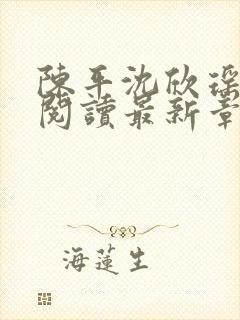 陳平沈欣琛
閱讀最新章
海蓮生